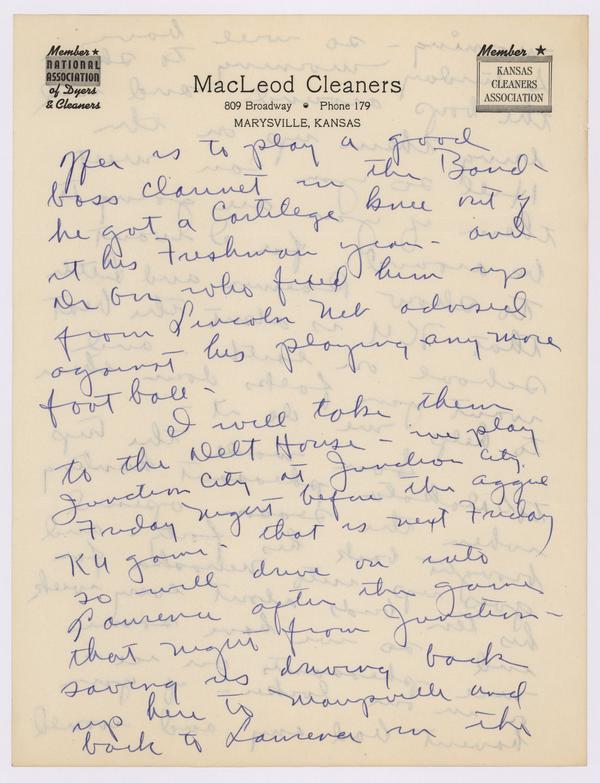 Member ★
NATIONAL
ASSOCIATION
of Dyers
& Cleaners
MacLeod Cleaners
809 Broadway • Phone 179
MARYSVILLE, KANSAS
Member ★
KANSAS
CLEANERS
ASSOCIATION
is to play a good
bass clarinet in the Band-
he got a Cartilege knee out of
it his Freshman year - and
Dr Orr who fixed him up
from Lincoln Neb advised
against his playing any more
foot ball -
I will take them
to the Delt House - we play
Junction City at Junction City
Friday Night before the Aggie
KU game - that is next Friday
so will drive on into
Lawrence after the game
that night from Junction -
saving us driving back
up here to Marysville and
back to Lawrence in the